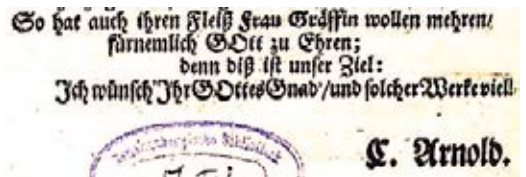 So hat auch ihren Fleiß Frau Gräffin wollen mehren/
fürnemlich GOtt zu Ehren;
denn diß ist unser Ziel:
Ich wünsch' Ihr GOttes Gnad'/und solcher Werke viel!
C. Arnold.